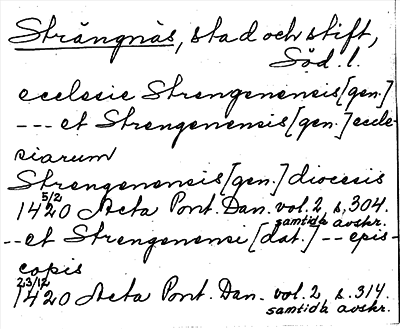 Strängnäs, stad och stift,
Söd. l.
ecclesie Strengenensis [gen.]
--- et Strengenensis [gen.] eccle-
siarum
Strengenensis [gen.] diocesis
5/2
1420 Acta Pont. Dan. vol. 2 s. 304.
samtida avskr.
-- et Strengenensi [dat.] -- epis-
copis
23/12
1420 Acta Pont. Dan. vol. 2 s. 314.
samtida avskr.